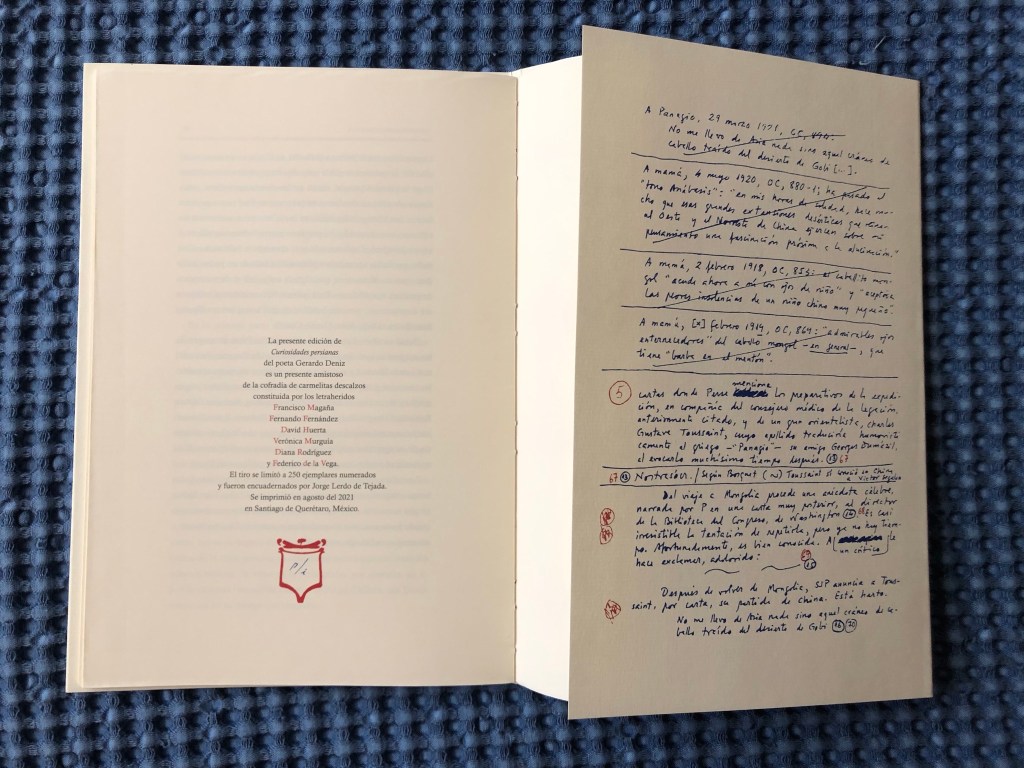 La presente edición de
Curiosidades persianas
del poeta Gerardo Deniz
es un presente amistoso
de la cofradía de carmelitas descalzos
constituida por los letraheridos
Francisco Magaña
Fernando Fernández
David Huerta
Verónica Murguía
Diana Rodríguez
y Federico de la Vega.
El tiro se limitó a 250 ejemplares numerados
y fueron encuadernados por Jorge Lerdo de Tejada.
Se imprimió en agosto del 2021
en Santiago de Querétaro, México.
A Panagio, 29 marzo 1921,
No me llevo de Asia nada sino aquel cráneo de
caballo traído del desierto de Gobi [...].
A mamá, 4 mayo 1920, OC, 880-1; ha pasado el
"tono Anábasis": "en mis horas de soledad, hace mu-
cho que esas grandes extensiones desérticas que tienen
al Oeste y el Noroeste de China ejercen sobre mi
pensamiento una fascinación próxima a la alucinación."
A mamá, 2 febrero 1918, OC, 855: el caballito mon-
gol "acude ahora a mí con ojos de niño" y "aceptosa
las peores insolencias de un niño chino muy pequeño.
A mamá, [x] febrero 1919, OC, 869: "admirables ojos
enternecedores" del caballo mongol -en general-, que
tiene "barba en el mentón".
5 cartas donde Perse menciona los preparativos de la expedi-
ción, en compañía del consejero médico de la legación,
anteriormente citado, y de un gran orientalista, Charles
Gustave Toussaint, cuyo apellido traduciría humorísti-
camente al griego -"Panagio"- su amigo Georges Dumézil,
al evocarlo muchísimo tiempo después. 67
67 Nostradut. / Según Bosquet Toussaint en China
a Victor Segalen
Del viaje a Mongolia procede una anécdota célebre,
narrada por P en una carta muy posterior, al director
de la Biblioteca del Congreso, de Washington Es casi
irresistible la tentación de repetirla, pero ya no hay tiem-
po. Afortunadamente, es bien conocida. A un crítico le
hace exclamar, addorido:
Después de volver de Mongolia, SJP anuncia a Tous-
saint, por carta, su partida de China. Está harto.
No me llevo de Asia nada sino aquel cráneo de ca-
ballo traído del desierto de Gobi